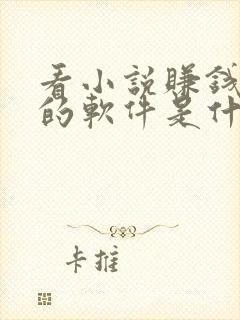 看小說賺錢
的軟件是什
卡推